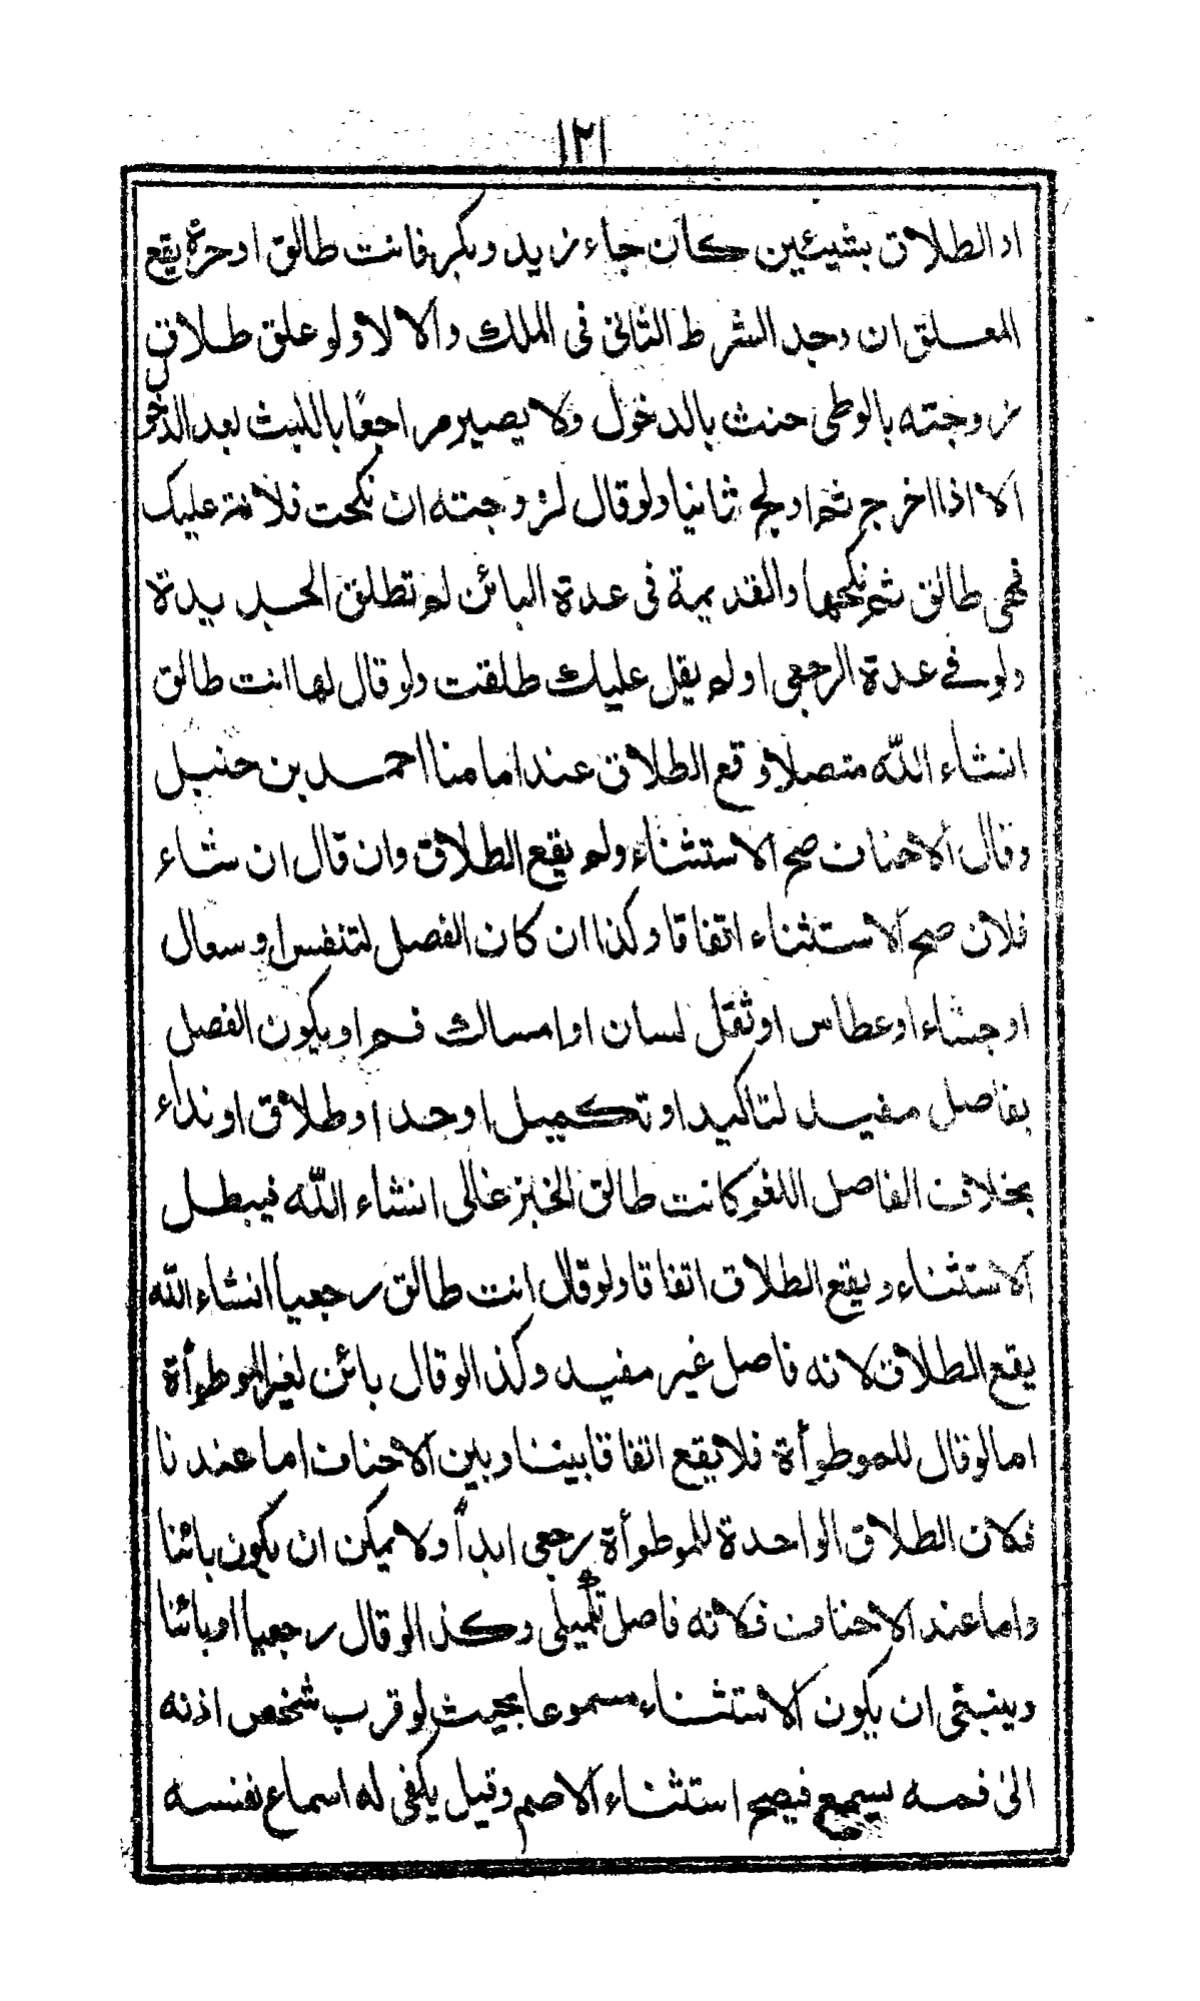 ١٢١
او الطلاق بشيئين كان جاء زيد وبكر فانت طالق او حرة يقع
المعلق ان وجد الشرط الثانى فى الملك والا لا ولو علق طلاق
زوجته بالوطى حنث بالدخول ولا يصير مراجعًا باللبث بعد الدخول
الا اذا اخرج ثم اولج ثانيا ولو قال لزوجته ان نكحت فلانة عليك
فهى طالق ثم نكحها والقديمة فى عدة البائن لم تطلق الجديدة
ولو فى عدة الرجعى او لم يقل عليك طلقت ولو قال لها انت طالق
انشاء الله متصلا وقع الطلاق عند امامنا احمد بن حنبل
وقال الاحناف صح الاستثناء ولم يقع الطلاق وان قال ان شاء
فلان صح الاستثناء اتفاقا وكذا ان كان الفصل لتنفس او سعال
او جشاء او عطاس او ثقل لسان او امساك فم او يكون الفصل
بفاصل مفيد لتاكيد او تكميل او حد او طلاق او نداء
بخلاف الفاصل اللغو كانت طالق الخبز غالى انشاء الله فيبطل
الاستثناء ويقع الطلاق اتفاقا ولو قال انت طالق رجعيا انشاء الله
يقع الطلاق لانه فاصل غير مفيد وكذا لو قال بائن لغير الموطوأة
اما لو قال للموطوأة فلا يقع اتفاقا بيننا وبين الاحناف اما عندنا
فلان الطلاق الواحدة للموطوأة رجعى ابداً ولا يمكن ان يكون بائنا
واما عند الاحناف فلانه فاصل تكميلى وكذا لو قال رجعيا او بائنا
وينبغى ان يكون الاستثناء مسموعا بحيث لو قرب شخص اذنه
الى فمه يسمع فيصح استثناء الاصم وقيل يكفى له اسماع نفسه